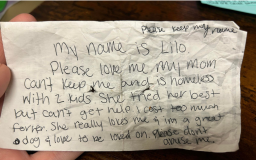 please keep my name
My name is Lilo
Please love me my mom
can't keep me and is homeless
with 2 kids she tried her best
but can't get help I cost too much
for her. She really loves me & im a great
dog & love to be loved on. please dont
abuse me.